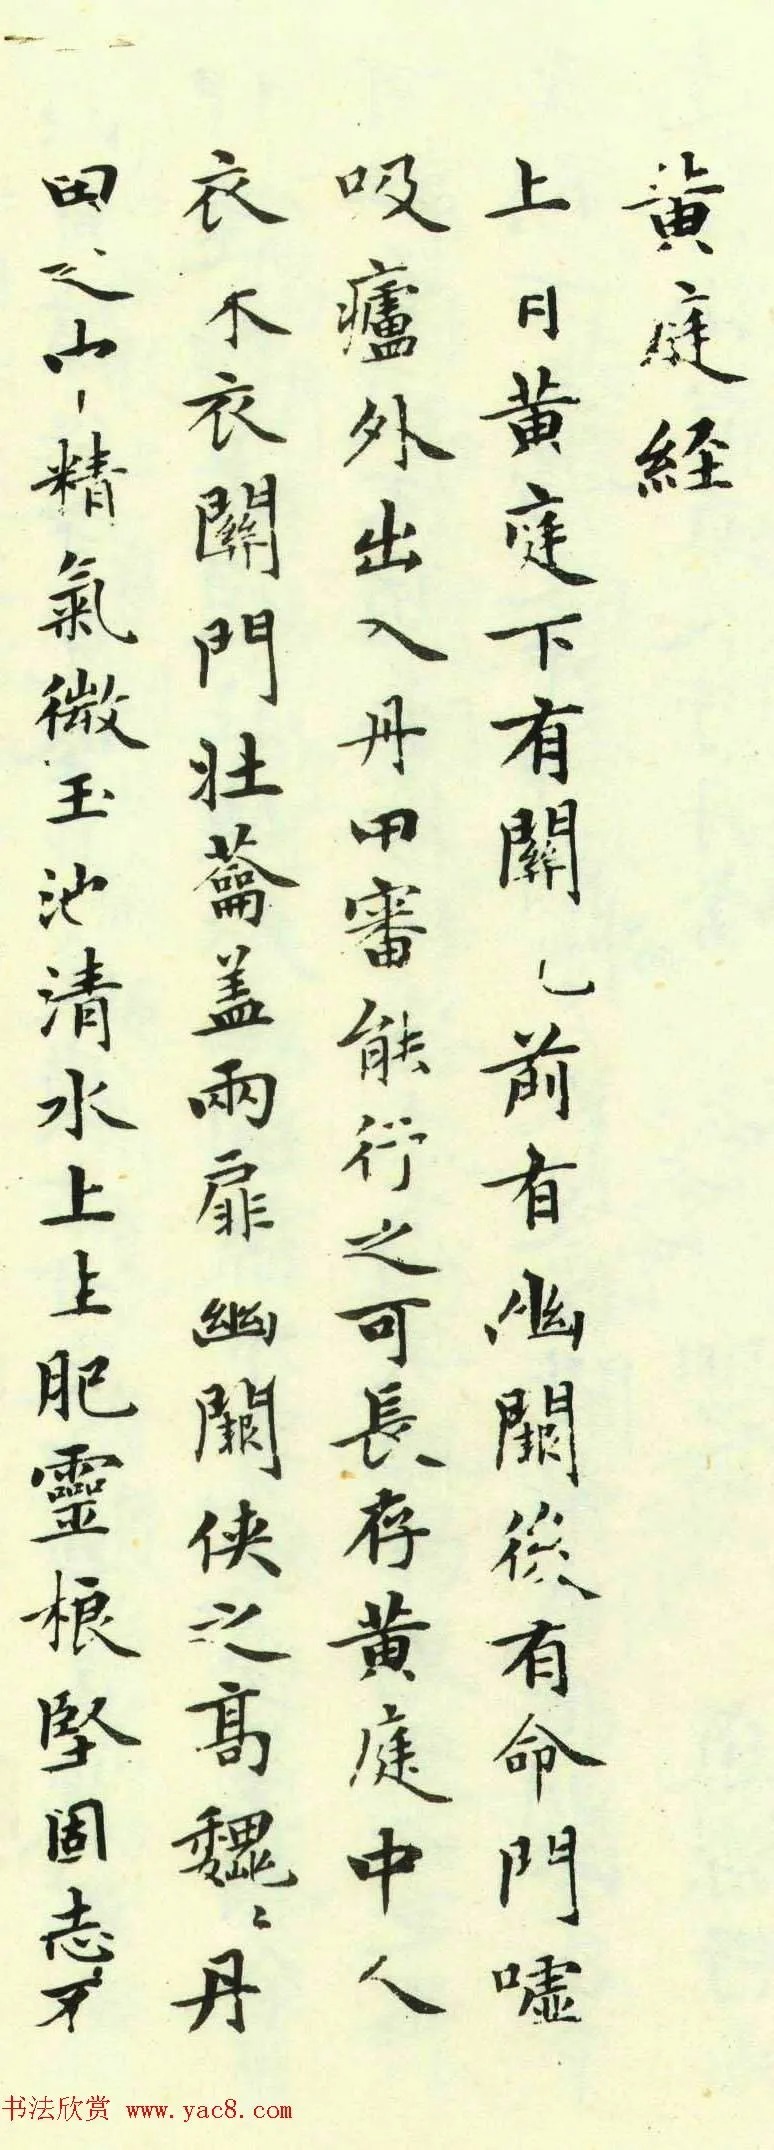 黄庭経
上日黄庭下有關元前有幽闕後有命門噓
吸廬外出入丹田審能行之可長存黄庭中人
衣木衣關門壯蘥盖兩扉幽闕侠之高魏〻丹
田之中精氣微玉池清水上上肥靈根堅固志不
书法欣赏 www.yac8.com